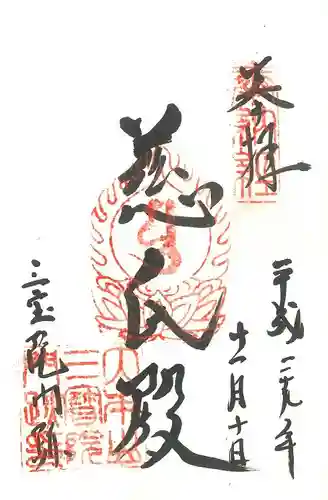 奉拝
平成二十九年
十一月十日
慈氏殿
三宝院門跡